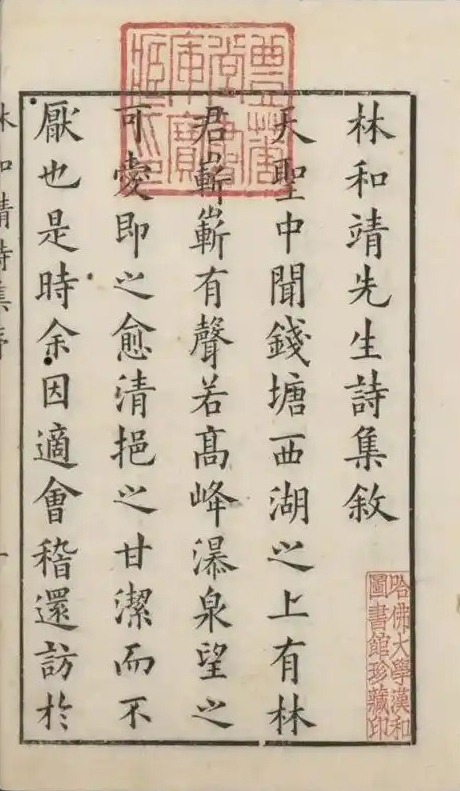 林和靖先生詩集敘
天聖中聞錢塘西湖之上有林
君嶄嶄有聲若高峰瀑泉望之
可愛即之愈清挹之甘潔而不
厭也是時余因適會稽還訪於
林和靖詩集序
哈佛大學漢和
圖書館珍藏印